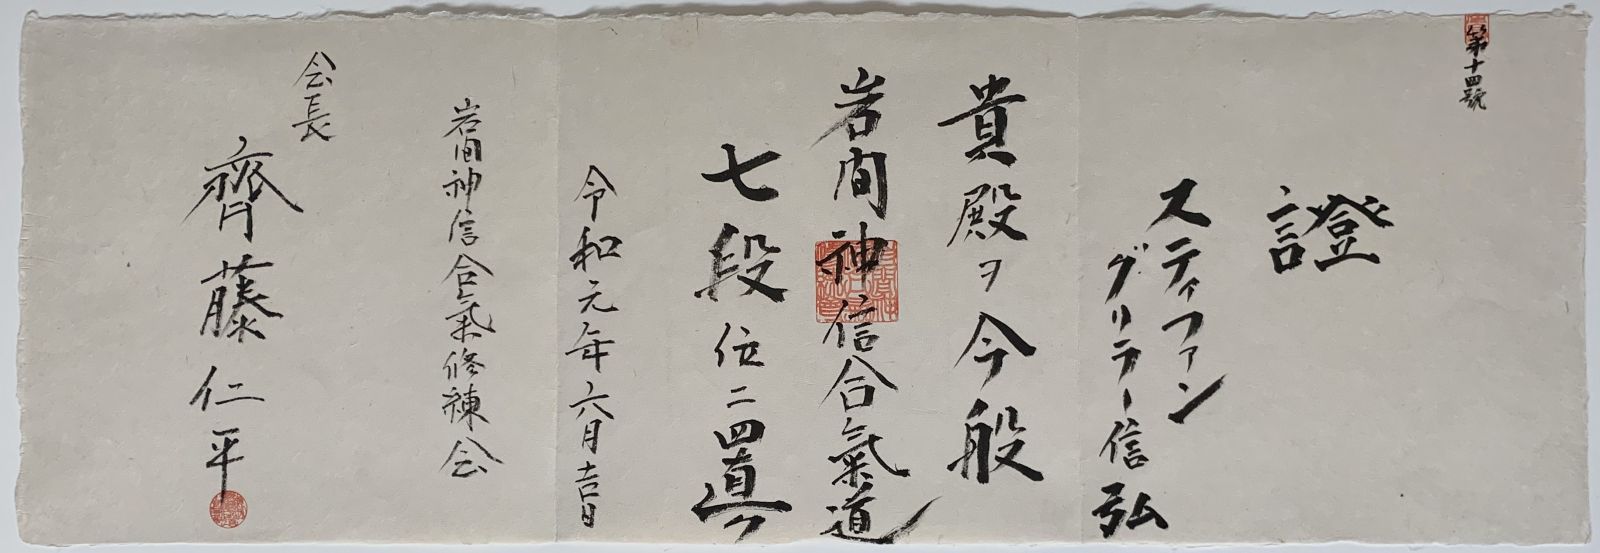 第十四號
證
スティファン
グリラー信弘
貴殿ヲ今般
岩間神信合氣道
七段位ニ
令和元年六月吉日
岩間神信合氣修練会
会長
齊藤仁平